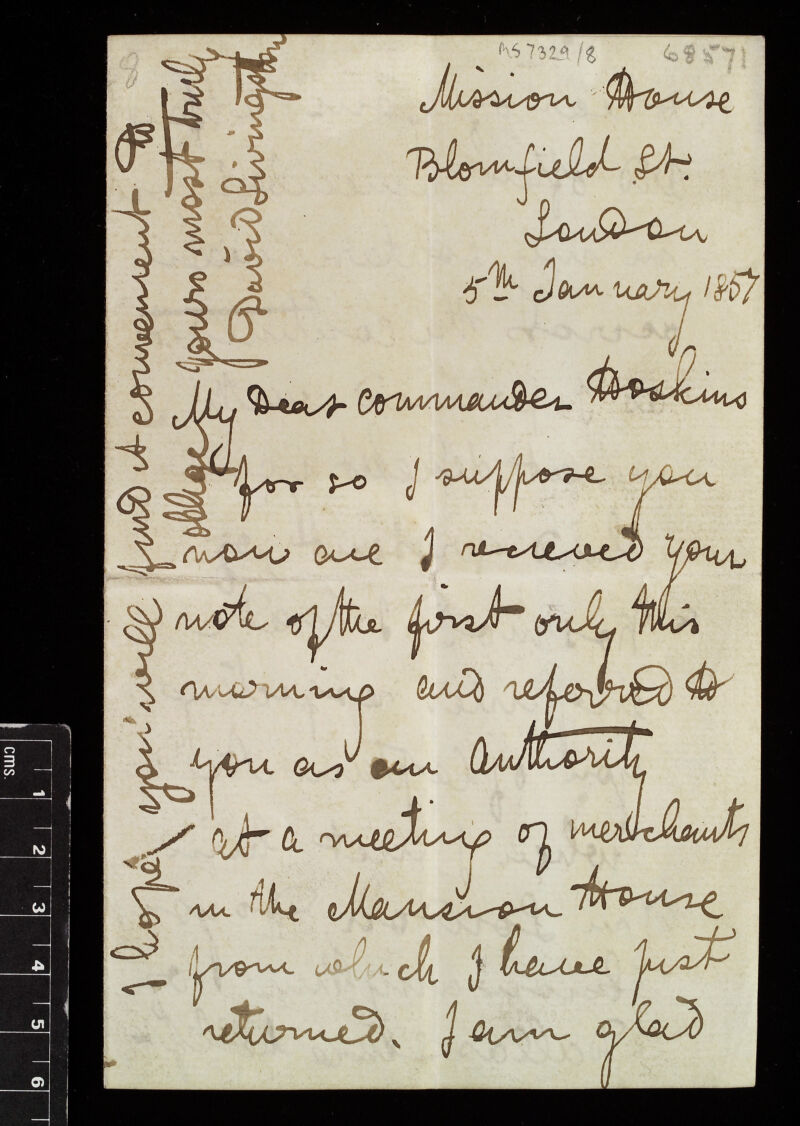 MS 7329/8
68571
8
Mission House
Blomfield St.
London
5th January 1857
My Dear Commander Hoskins
for so I suppose you
now are I receeved your
note of the first only this
morning and referred to
you as an authority
at a meeting of merchants
in the Mansion House
from which I have just
returned. I am glad
I hope you will find it convenient to
oblige yours most truly
David Livingston
cms.
1
2
3
4
5
6